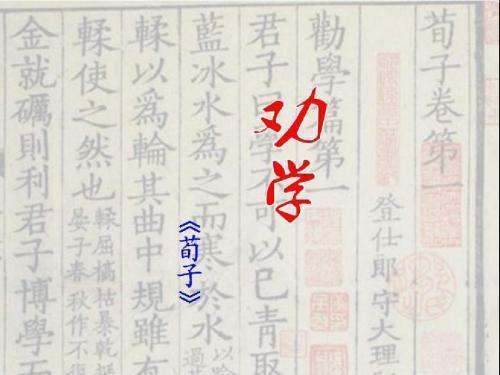 劝学
《荀子》
荀子卷第一
登仕郎守大理
勸學篇第一
君子曰學不可以已青取
藍冰水爲之而寒於水
輮以爲輪其曲中規雖有
輮使之然也
晏子春秋作不復
金就礪則利君子博學